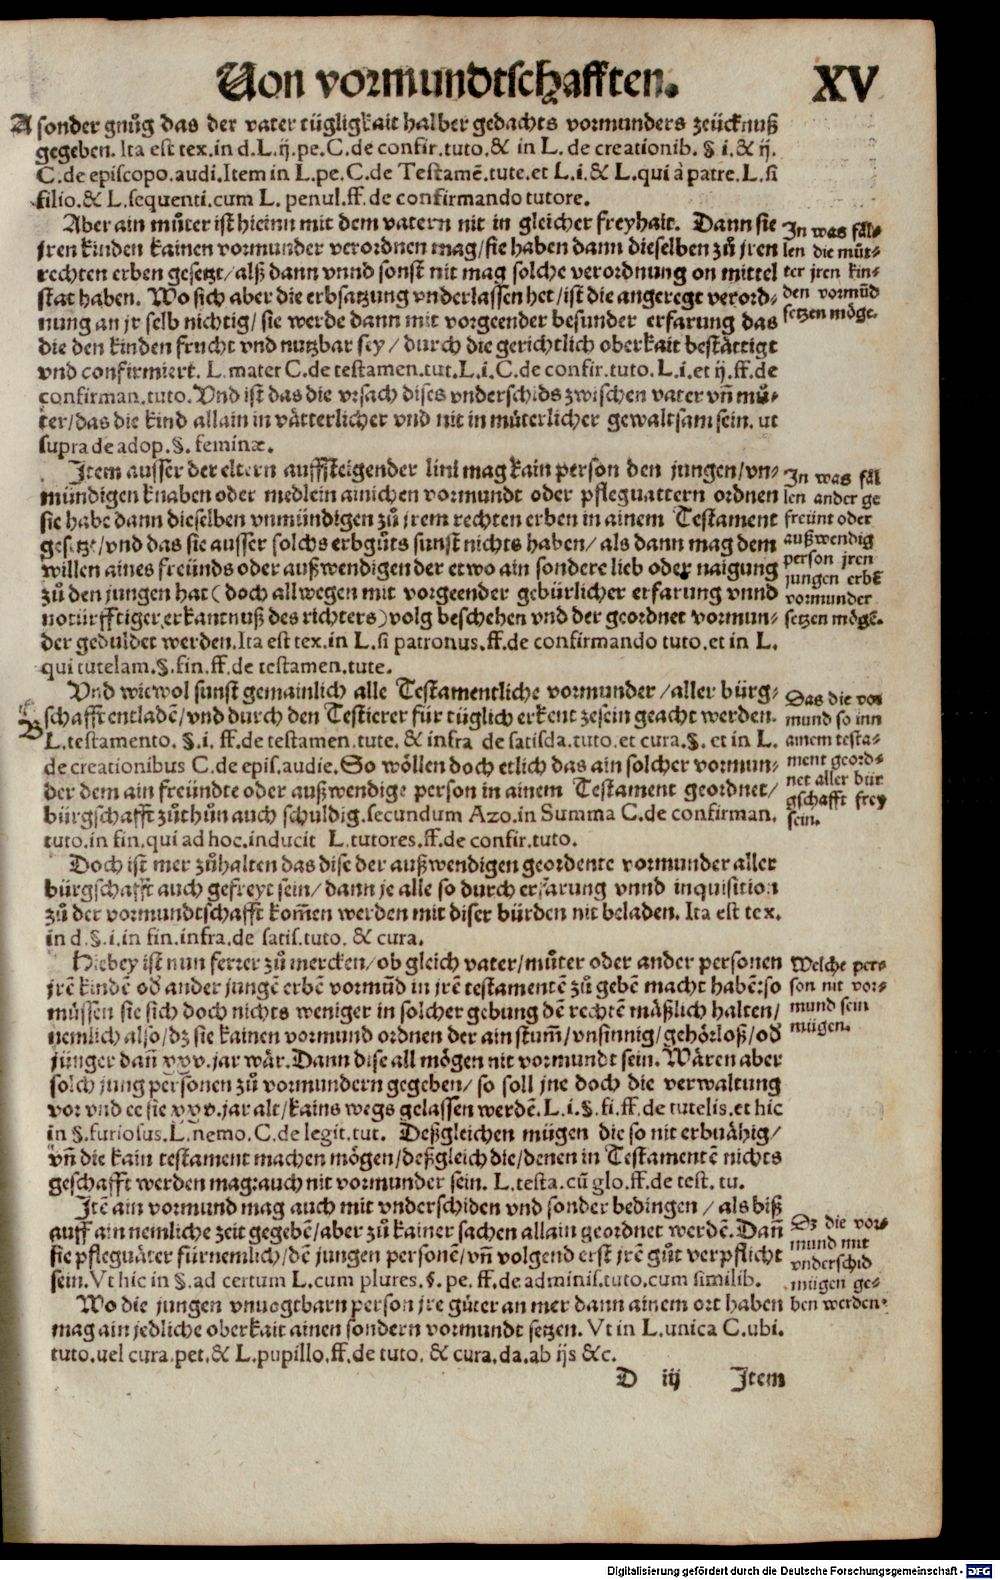 Von vormundtschafften. XV
A sonder gnůg das der vater tügligkait halber gedachts vormunders zeücknuß
gegeben. Ita est tex. in d. L. ij. pe. C. de confir. tuto. & in L. de creationib. § i. & ij.
C. de episcopo. audi. Item in L. pe. C. de Testamē. tute. et L. i. & L. qui à patre. L. si
filio. & L. sequenti. cum L. penul. ff. de confirmando tutore.
Aber ain můter ist hieinn mit dem vatern nit in gleicher freyhait. Dann sie
jren kinden kainen vormunder verordnen mag/ sie haben dann dieselben zů jren
rechten erben gesetzt/ alß dann vnnd sonst nit mag solche verordnung on mittel
stat haben. Wo sich aber die erbsatzung vnderlassen het/ ist die angeregt verord-
nung an jr selb nichtig/ sie werde dann mit vorgeender besunder erfarung das
die den kinden frucht vnd nutzbar sey/ durch die gerichtlich oberkait bestättigt
vnd confirmiert. L. mater C. de testamen. tut. L. i. C. de confir. tuto. L. i. et ij. ff. de
confirman. tuto. Vnd ist das die vrsach dises vnderschids zwischen vater vñ mů-
ter/ das die kind allain in vätterlicher vnd nit in můterlicher gewaltsam sein. ut
supra de adop. §. feminæ.
In was fäl-
len die můt-
ter jren kin-
den vormūd
setzen möge.
Item ausser der eltern auffsteigender lini mag kain person den jungen/ vn-
mündigen knaben oder medlein ainichen vormundt oder pfleguattern ordnen
sie habe dann dieselben vnmündigen zů jrem rechten erben in ainem Testament
gesetzt/ vnd das sie ausser solchs erbgůts sunst nichts haben/ als dann mag dem
willen aines freünds oder außwendigen der etwo ain sondere lieb oder naigung
zů den jungen hat (doch allwegen mit vorgeender gebürlicher erfarung vnnd
notürfftiger erkantnuß des richters) volg beschehen vnd der geordnet vormun-
der geduldet werden. Ita est tex. in L. si patronus. ff. de confirmando tuto. et in L.
qui tutelam. §. fin. ff. de testamen. tute.
In was fäl
len ander ge
freünt oder
außwendig
person jren
jungen erbē
vormunder
setzen möge.
Vnd wiewol sunst gemainlich alle Testamentliche vormunder/ aller bürg-
B schafft entladē/ vnd durch den Testierer für tüglich erkent zesein geacht werden.
L. testamento. §. i. ff. de testamen. tute. & infra de satisda. tuto. et cura. §. et in L.
de creationibus C. de epis. audie. So wöllen doch etlich das ain solcher vormun-
der dem ain freündte oder außwendige person in ainem Testament geordnet/
bürgschafft zůthůn auch schuldig. secundum Azo. in Summa C. de confirman.
tuto. in fin. qui ad hoc. inducit L. tutores. ff. de confir. tuto.
Das die vor
mund so inn
ainem testa-
ment geord-
net aller bür
gschafft frey
sein.
Doch ist mer zůhalten das dise der außwendigen geordente vormunder aller
bürgschafft auch gefreyt sein/ dann je alle so durch erfarung vnnd inquisition
zů der vormundtschafft kom̄en werden mit diser bürden nit beladen. Ita est tex.
in d. §. i. in fin. infra. de satis. tuto. & cura.
Hiebey ist nun ferrer zů mercken/ ob gleich vater/ můter oder ander personen
jrē kindē od̄ ander jungē erbē vormūd in jrē testamentē zů gebē macht habē: so
müssen sie sich doch nichts weniger in solcher gebung dē rechtē mäßlich halten/
nemlich also/ dz sie kainen vormund ordnen der ain stum̄/ vnsinnig/ gehörloß/ od̄
jünger dañ xxv. jar wär. Dann dise all mögen nit vormundt sein. Wären aber
solch jung personen zů vormundern gegeben/ so soll jne doch die verwaltung
vor vnd ee sie xxv. jar alt/ kains wegs gelassen werdē. L. i. §. fi. ff. de tutelis. et hic
in §. furiosus. L. nemo. C. de legit. tut. Deßgleichen mügen die so nit erbuähig/
vñ die kain testament machen mögen/ deßgleich die/ denen in Testamentē nichts
geschafft werden mag: auch nit vormunder sein. L. testa. cū glo. ff. de test. tu.
Welche per-
son nit vor-
mund sein
mügen.
Itē ain vormund mag auch mit vnderschiden vnd sonder bedingen/ als biß
auff ain nemliche zeit gegebē/ aber zů kainer sachen allain geordnet werdē. Dañ
sie pfleguäter fürnemlich/ dē jungen personē/ vñ volgend erst jrē gůt verpflicht
sein. Vt hic in §. ad certum L. cum plures. §. pe. ff. de adminis. tuto. cum similib.
Dz die vor-
mund mit
vnderschid
mügen ge-
ben werden.
Wo die jungen vnuogtbarn person jre güter an mer dann ainem ort haben
mag ain jedliche oberkait ainen sondern vormundt setzen. Vt in L. unica C. ubi.
tuto. uel cura. pet. & L. pupillo. ff. de tuto. & cura. da. ab ijs &c.
D iij Item
Digitalisierung gefördert durch die Deutsche Forschungsgemeinschaft - DFG